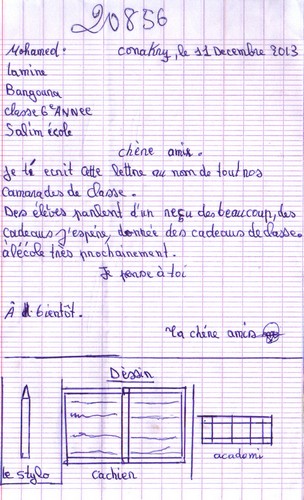 20856
Mohamed: conakry, le 11 Decembre 2013
Lamine
Bangoura
classe 6e ANNEE
Salim école
chère amis.
Je té ecrit cette lettre au nom de tout nos
camarades de classe.
Des élèves parlent d'un reçu des beaucoup, des
cadeaus j'espère, donnée des cadeaus de classe.
à l'école très prochainement.
Je pense à toi
À bientôt.
Ta chère amis
Dèssin
le stylo
cachier
academi